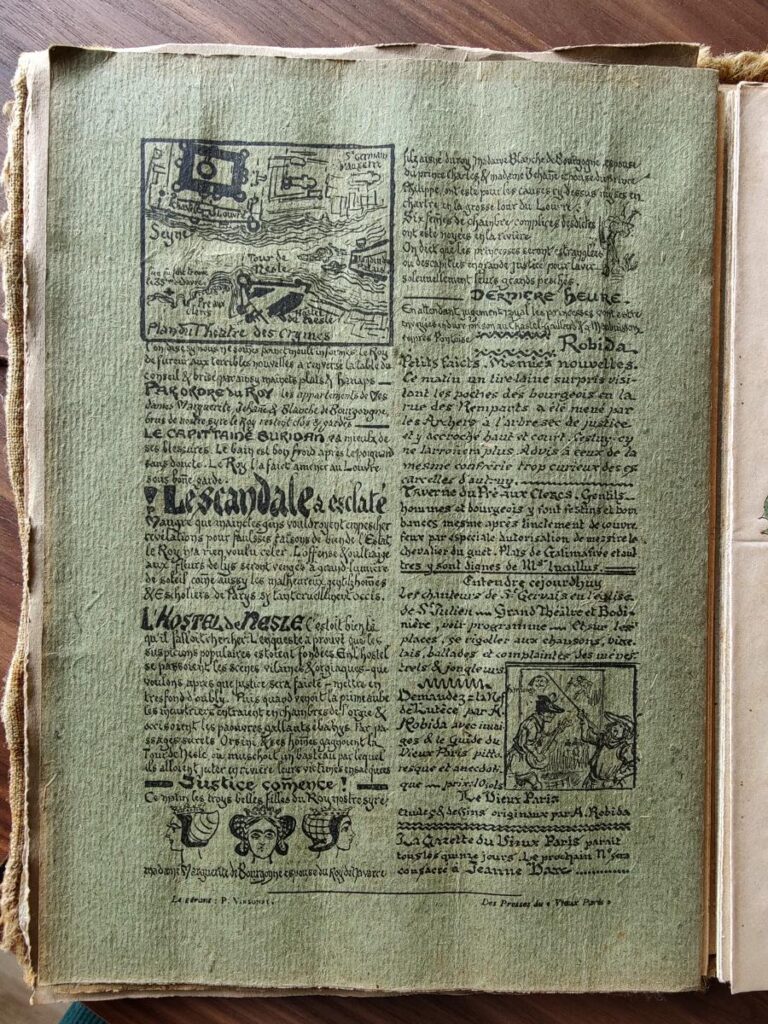 St Germain
l'Auxerre
Seyne
Tour de
Nesle
Pré aux
clercs
Hostel
de Nesle
Plan du Théâtre des Crymes
nous ne sommes pas moult informés le Roy
de fureur aux terribles nouvelles a renversé la table du
conseil & brisé par aynsy maincts plats & Hanaps
PAR ORDRE DU ROY les appartements de Mes
dames Marguerite, Jehane & Blanche de Bourgongne,
brus de nostre syre le Roy restent clos & gardés
LE CAPITTAINE BURIDAN va mieulx de
ses blessures. Le bain est bon froid après le poignard
sans doncte. Le Roy l'a faict amener au Louvre
sous bone garde.
Le scandale a esclaté
Maugré que maincles gens vouldroyent empescher
revelations pour faulsses raisons de bien de l'Estat
le Roy n'a rien voulu celer. L'offense & oultraige
aux fleurs de lys seront vengés à grand lumière
de soleil come aussy les malheureux gentilshomes
& Escholiers de Parys sy tant cruellement occis.
L'HOSTEL de NESLE C'estoit bien là
qu'il falloit chercher. L'enqueste a prouvé que les
suspicions populaires estoient fondées. En l'hostel
se passoient les scènes vilaines & orgiaques que
voulons après que justice sera faicte mettre en
tresfond d'oubly. Puis quand venoit la prime aube
les meurtriers entraient en chambres de l'orgie &
occisoient les paouvres gallants ébahys. Par pa-
ssages secrets Orsini & ses homes gagnoient la
Tour de Nesle, où muschoit un basteau par lequel
ils alloient jeter en rivière leurs victimes ensacquées
Justice comence !
Ce matin les troys belles filles du Roy nostre syre,
madame Marguerite de Bourgongne espouse du Roy de Navarre
fils aisné du roy, Madame Blanche de Bourgongne espouse
du prince Charles & madame Jehane espouse du prince
Philippe, ont esté pour les causes cy dessus mises en
chartre en la grosse tour du Louvre.
Six femes de chambre complices desdictes
ont esté noyées en la rivière
On dict que les princesses seront estranglées
ou descapitées en grande Justice pour laver
solennellement leurs grands peschés.
DERNIERE HEURE.
En attendant jugement royal les princesses vont estre
envoyées en dure prison au Chastel-Gaillard & à Maubuisson
emprès Pontoise
Robida
Petits faicts. Menues nouvelles.
Ce matin un tire-laine surpris visi-
tant les poches des bourgeois en la
rue des Remparts a été mené par
les Archers à l'arbre sec de justice
et y accroché haut et court. Cestuy-cy
ne larronera plus. Advis à ceux de la
mesme confrérie trop curieux des es
carcelles d'autruy.
Taverne du Pré-aux Clercs. Gentils-
hommes et bourgeois y font festins et bom
bances mesme après tinctement de couvre
feux par especiale autorisation de messire le
chevalier du guet. Plats de Galimafrée et aul
tres y sont dignes de Mre Lucullus.
Entendre cejourdhuy
Les chanteurs de St Gervais en l'église
de St Julien — Grand Théâtre et Bodi-
nière, voir programme — Et sur les
places, se rigoller aux chansons, vire-
lais, ballades et complaintes des menes-
trels & jongleurs
Demandez "la Nef
de Lutèce" par A.
Robida avec imai-
ges & le Guide du
Vieux Paris pitto
resque et anecdoti
que — prix: 10 sols
Le Vieux Paris
études & dessins originaux par A. Robida
La Gazette du Vieux Paris parait
tous les quinze jours. Le prochain No sera
consacré à Jeanne Darc
Le gérant : P.
Des Presses du « Vieux Paris »